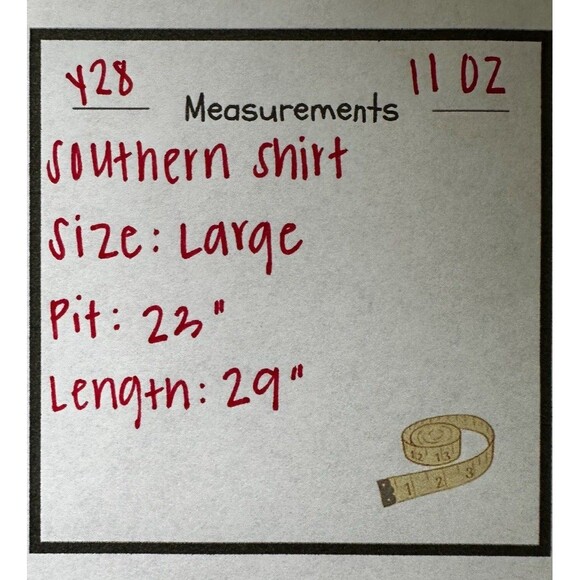 Y28
11 OZ
Measurements
Southern Shirt
Size: Large
Pit: 23"
Length: 29"
12 13
1 2 3